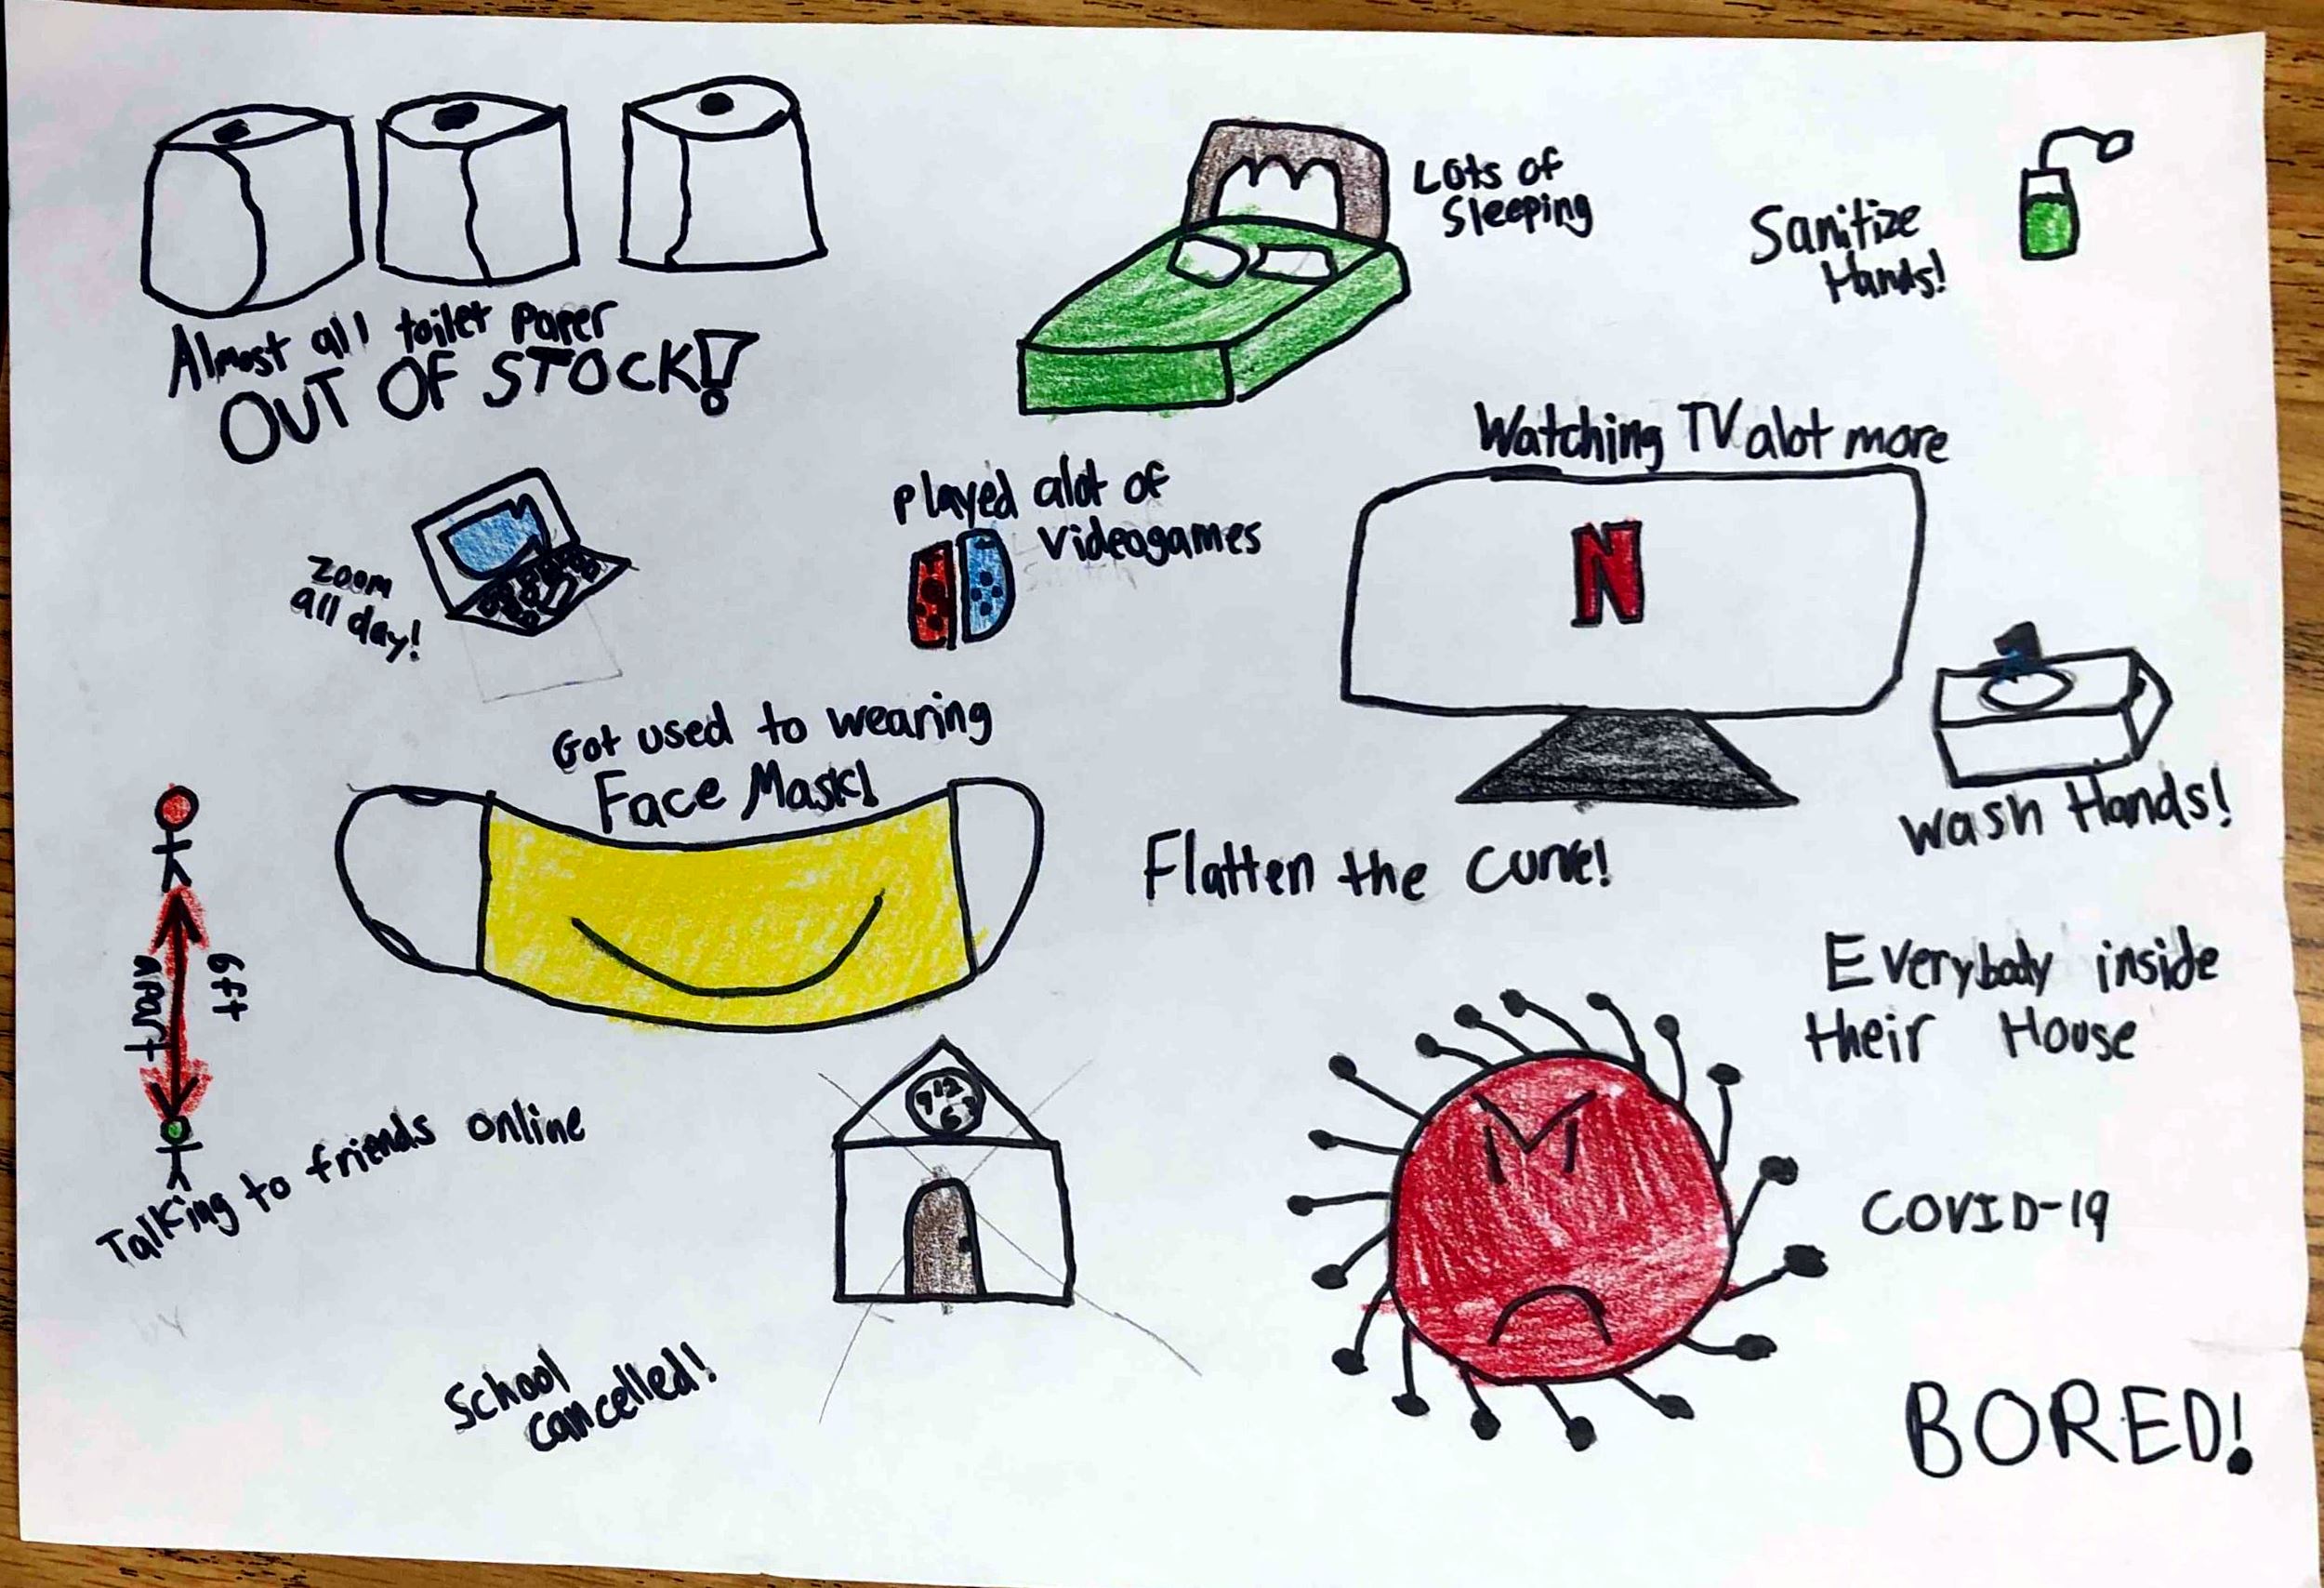 Almost all toilet paper
OUT OF STOCK!
Lots of
Sleeping
Sanitize
Hands!
Zoom
all day!
Played alot of
videogames
Watching TV alot more
N
Got used to wearing
Face Mask!
Wash Hands!
Flatten the curve!
6ft
apart
Everybody inside
their House
Talking to friends online
9 12 3
6
COVID-19
School
cancelled!
BORED!